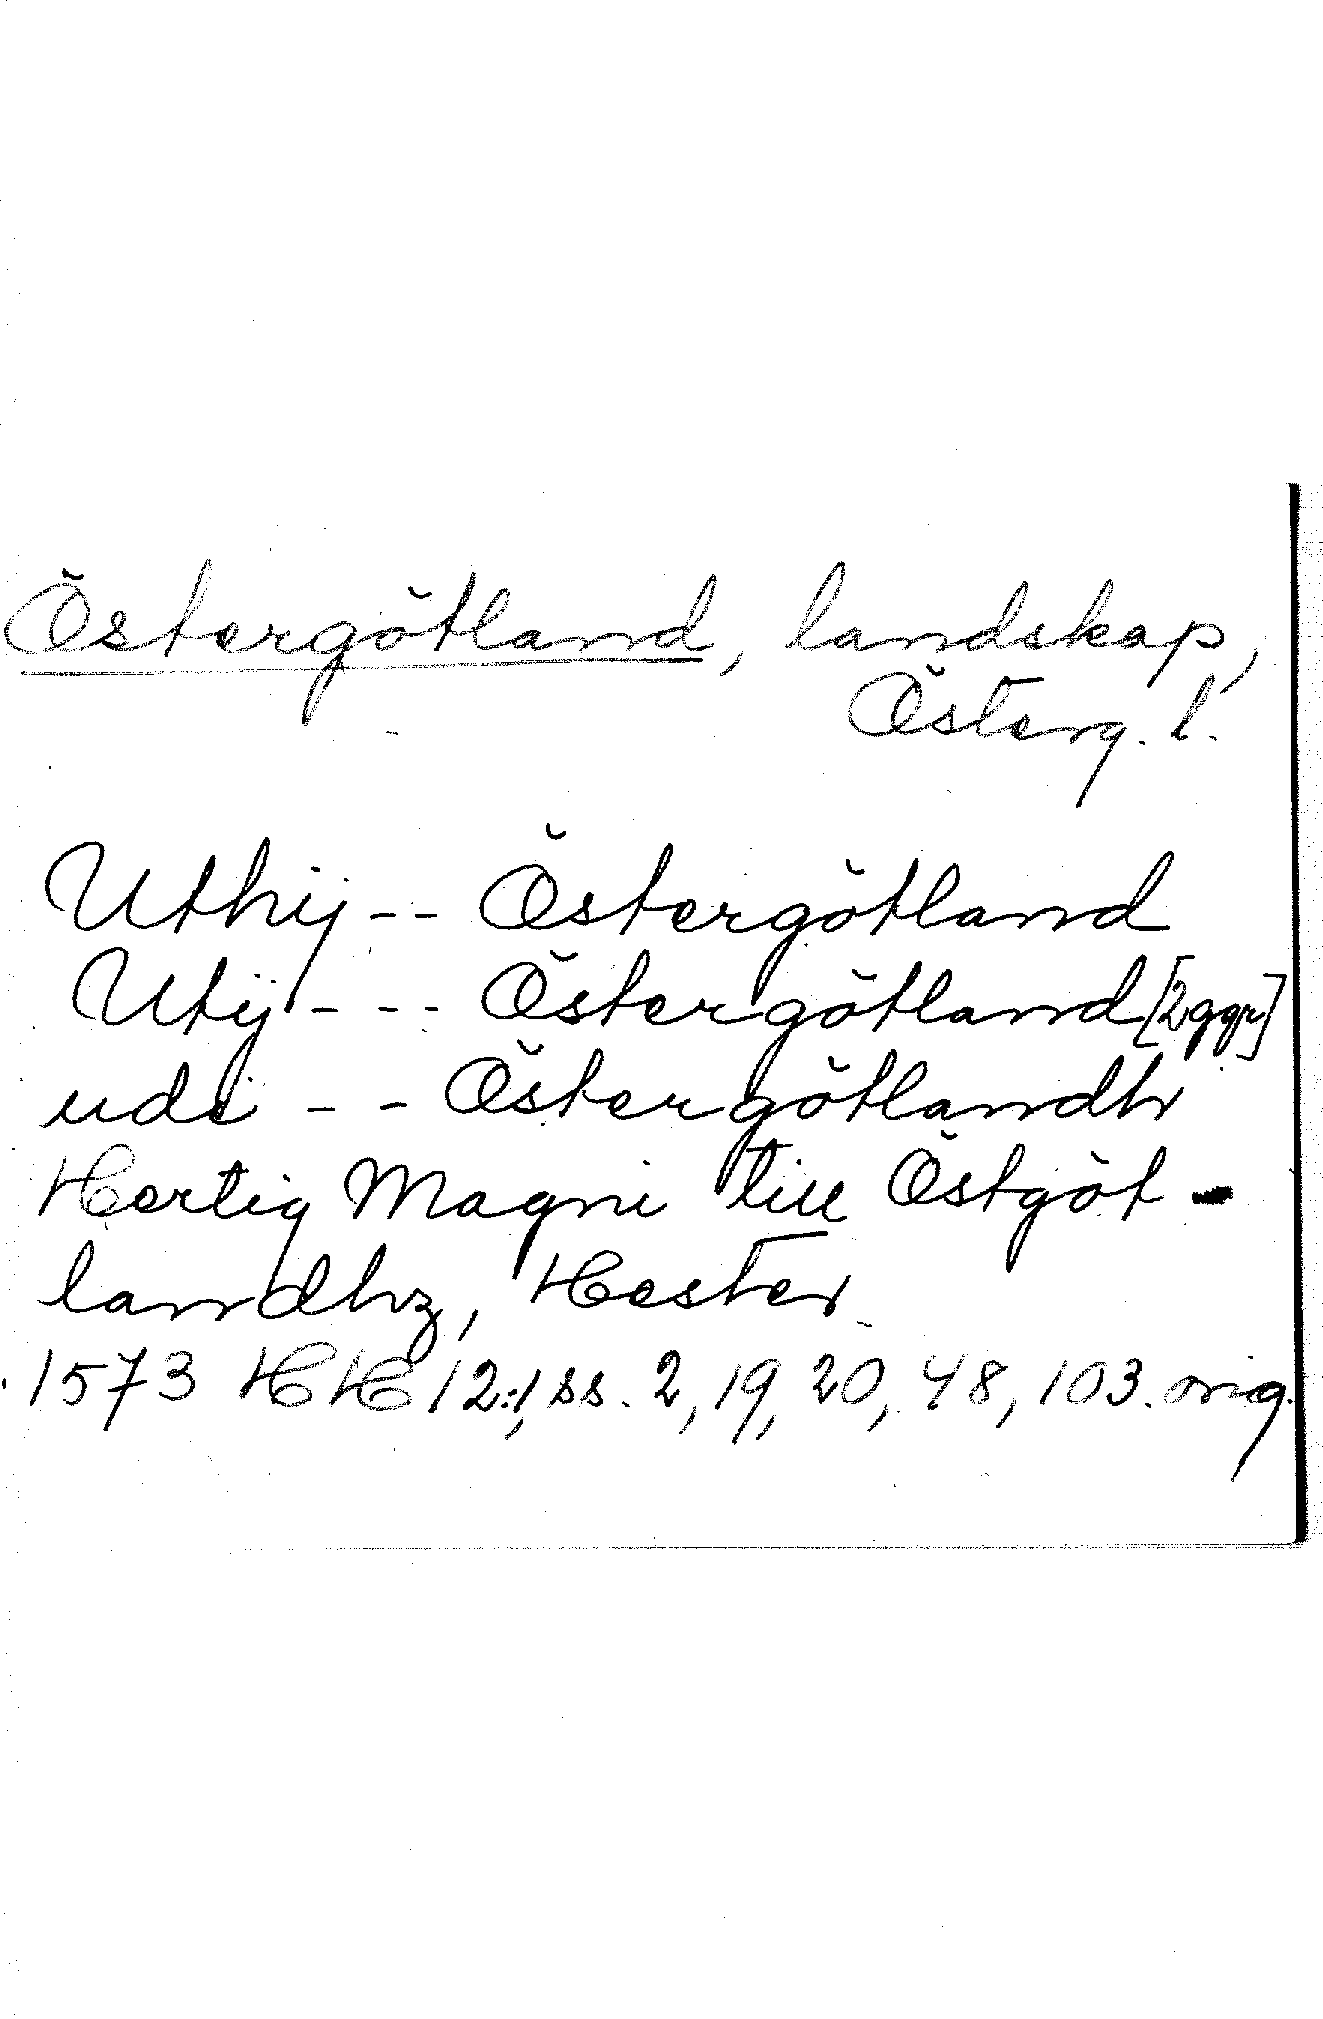 Östergötland, landskap,
Österg. l.
Uthij -- Östergötland
Utij --- Östergötland [2 ggr]
udi -- Östergötlandh
Hertig Magni till Östgöt-
landhz, Hester
1573 HH 12:1, ss. 2, 19, 20, 48, 103. orig.